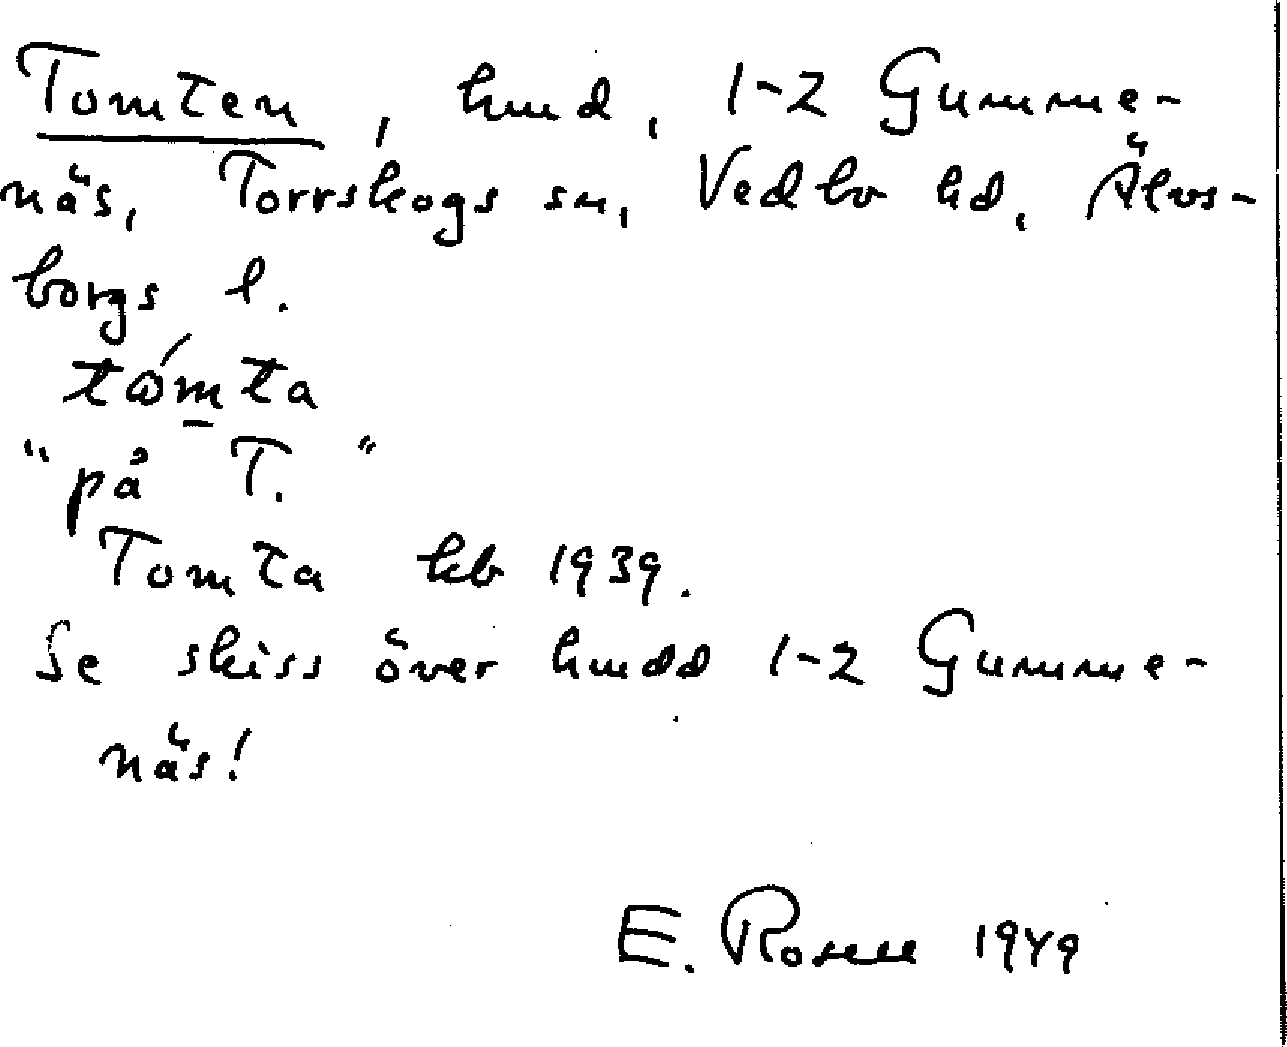 Tomten, hmd, 1-2 Gumme-
näs, Torrskogs sn, Vedbo hd, Älvs-
borgs l.
tómta
"på T."
Tomta kb 1939.
Se skiss över hmdd 1-2 Gumme-
näs!
E. Rosell 1949